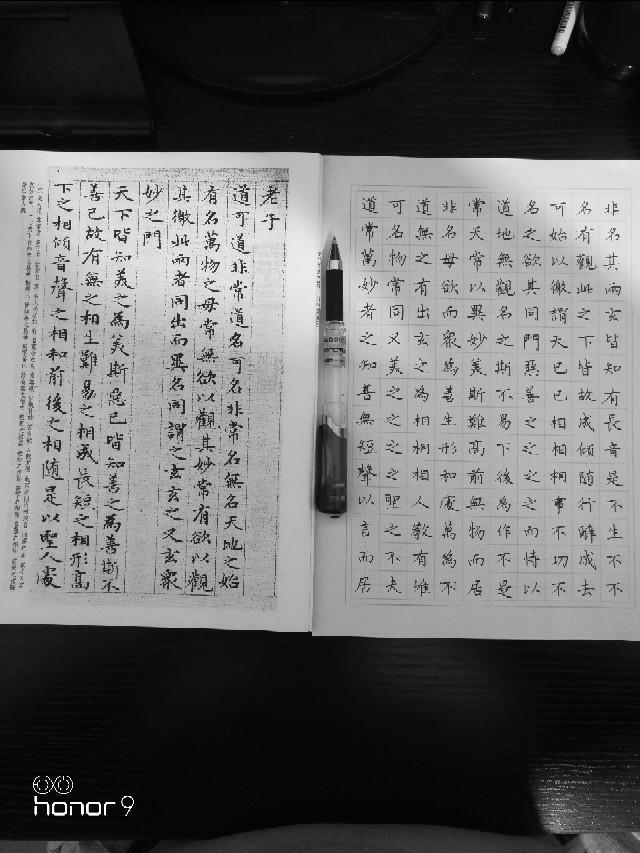 老子
道可道非常道名可名非常名無名天地之始
有名萬物之母常無欲以觀其妙常有欲以觀
其徼此而者同出而異名同謂之玄玄之又玄衆
妙之門
天下皆知美之為美斯惡已皆知善之為善斯不
善已故有無之相生難易之相成長短之相形高
下之相傾音聲之相和前後之相随是以聖人處
道可道非常道名可名非
常名無名天地之始有名
萬物之母常無欲以觀其
妙常有欲以觀其徼此而
者同出而異名同謂之玄
之又玄衆妙之門天下皆
知美之為美斯惡已皆知
善之為善斯不善已故有
無之相生難易之相成長
短之相形高下之相傾音
聲之相和前後之相随是
以聖人處無為之事行不
言之教萬物作而不辭生
而不有為而不恃功成不
居夫唯不居是以不去不
honor 9